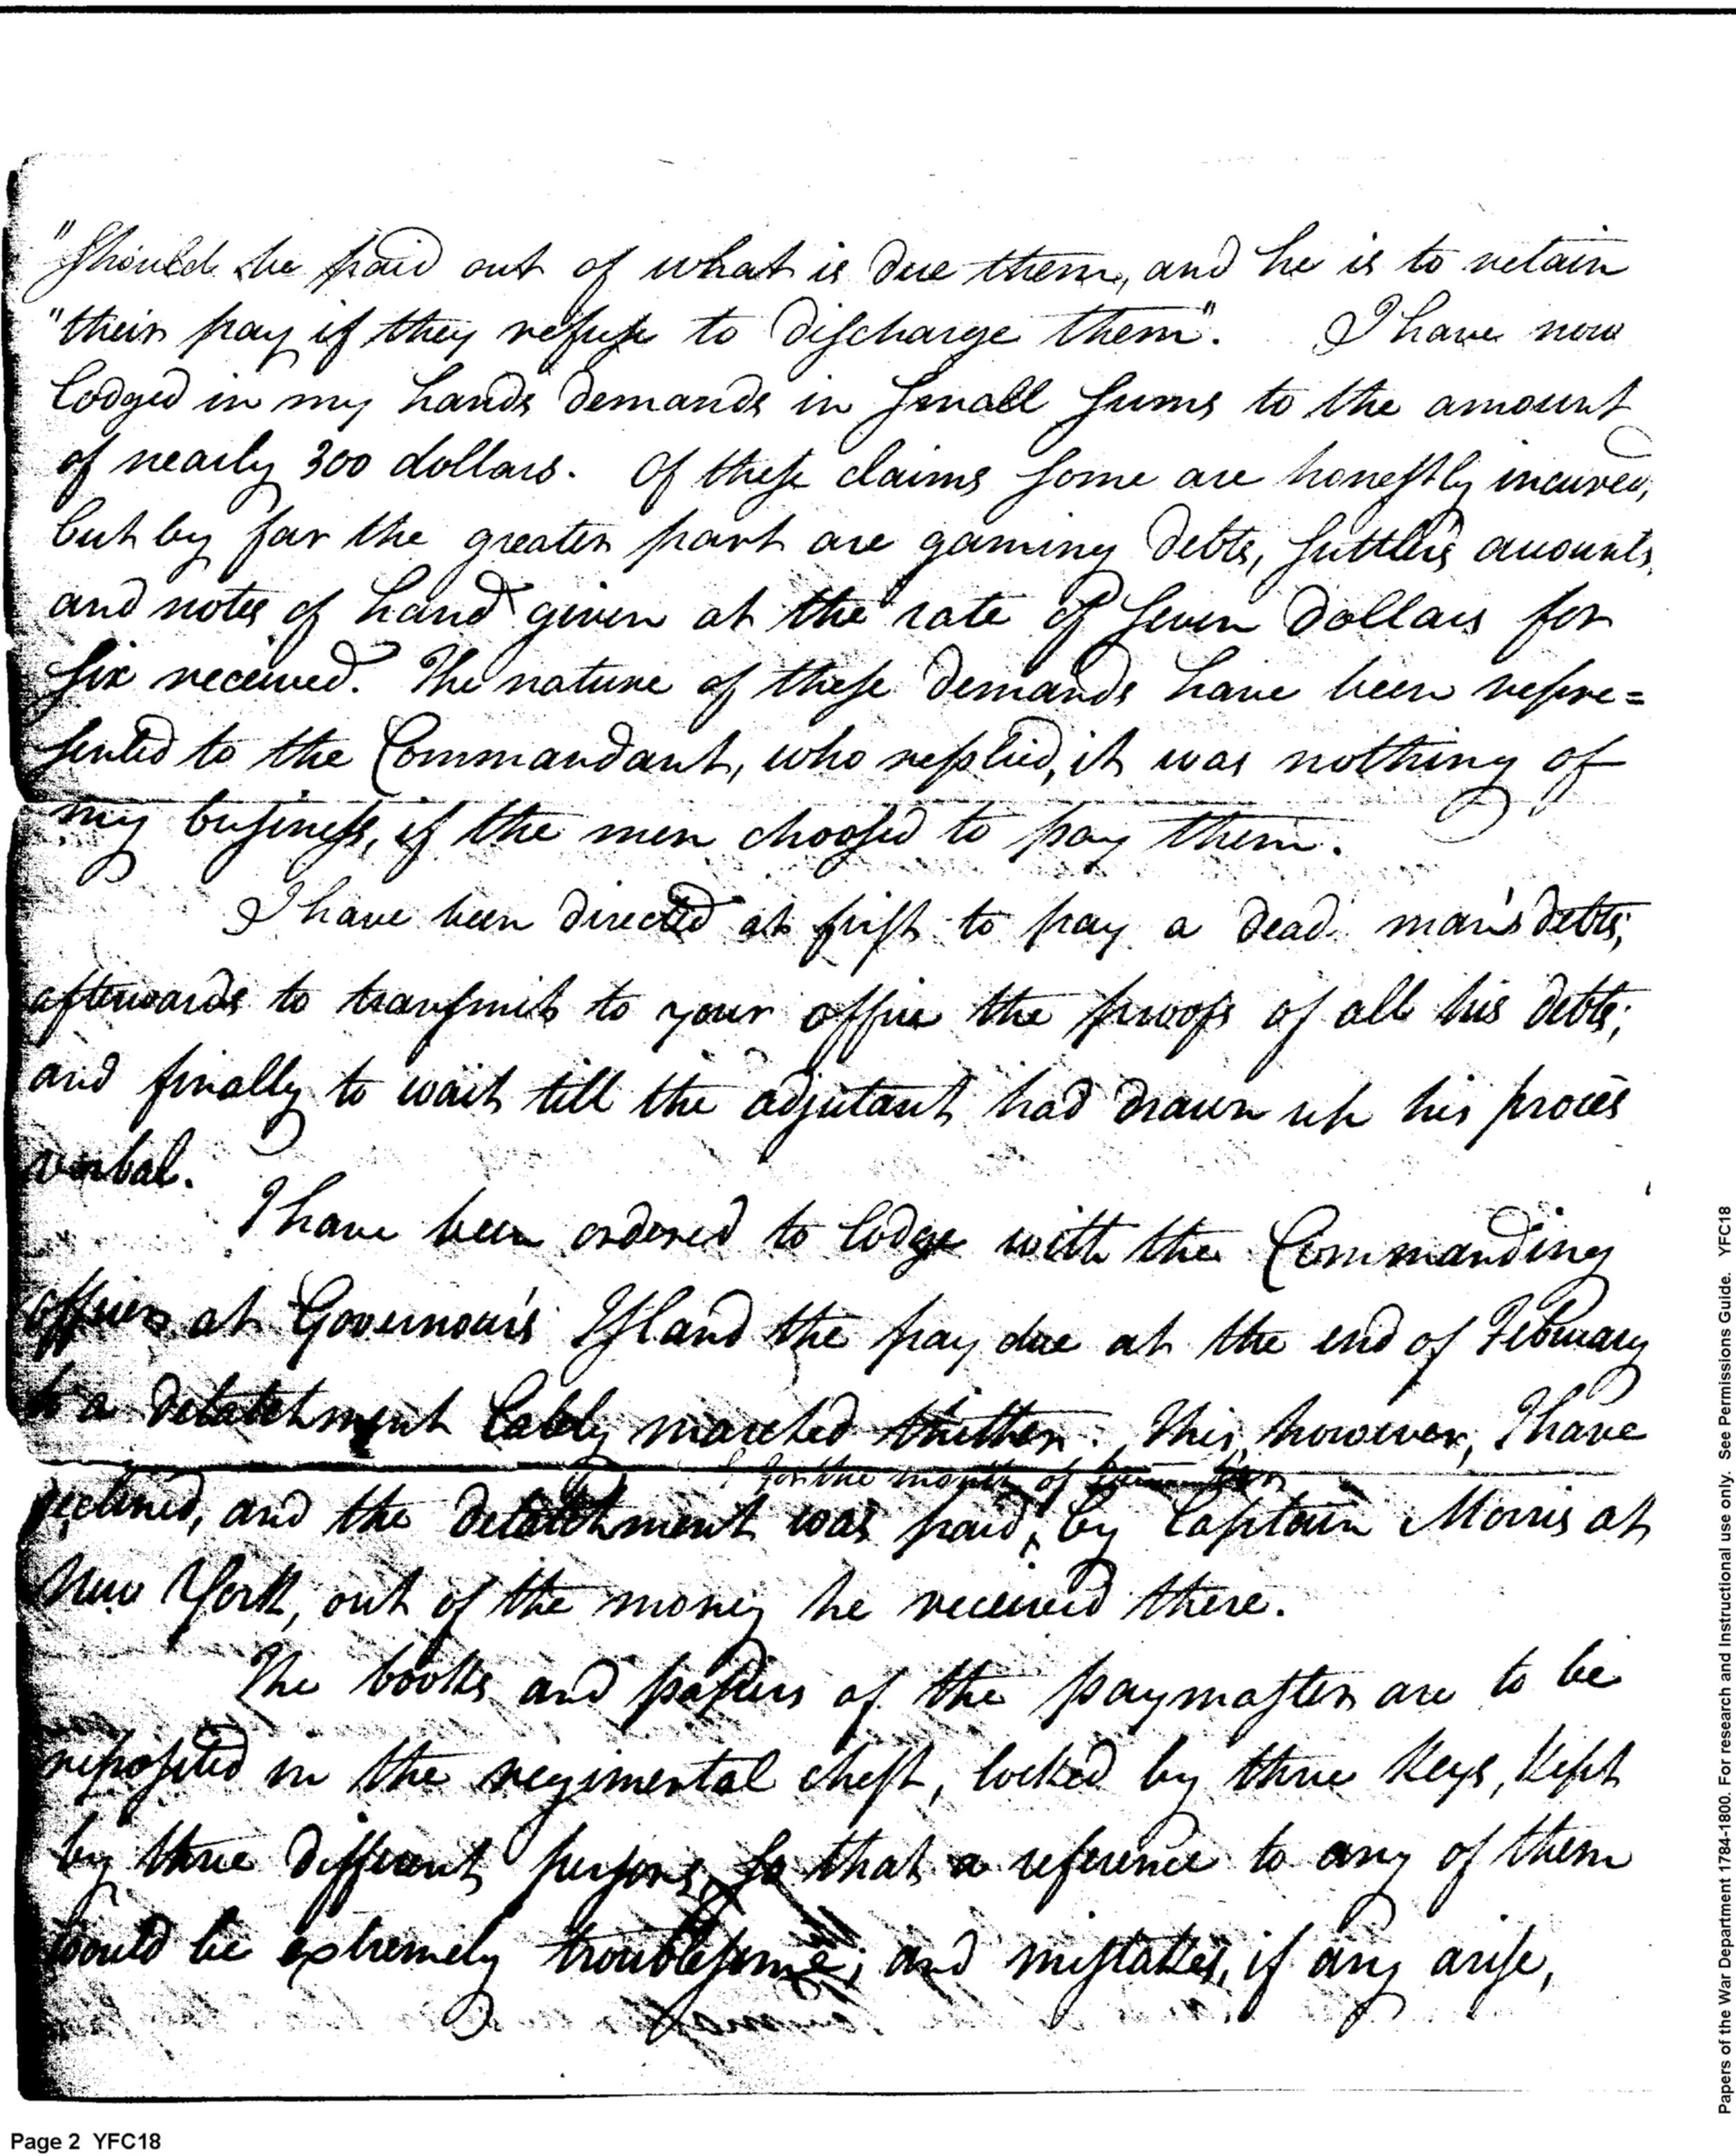 "Should be paid out of what is due them, and he is to retain
"their pay if they refuse to discharge them". I have now
lodged in my hands demands in small sums to the amount
of nearly 300 dollars. Of these claims some are honestly incured,
but by far the greater part are gaming debts, suttler's accounts,
and notes of hand given at the rate of seven dollars for
six received. The nature of these demands have been repre=
sented to the Commandant, who replied, it was nothing of
my business, if the men choosed to pay them.
I have been directed at first to pay a dead man's debts;
afterwards to transmit to your office the proofs of all his debts;
and finally to wait till the adjutant had drawn up his procès
verbal.
I have been ordered to lodge with the Commanding
officer at Governour's Island the pay due at the end of February
to a detatchment lately marched thither. This, however, I have
declined, and the detatchment was paid, by Captain Morris at
for the month of
New York, out of the money he received there.
The books and papers of the paymaster are to be
reposited in the regimental chest, locked by three keys, kept
by three different persons, so that a reference to any of them
would be extremely troublesome; and mistakes, if any arise,
Page 2 YFC18
Papers of the War Department 1784-1800. For research and Instructional use only. See Permissions Guide. YFC18